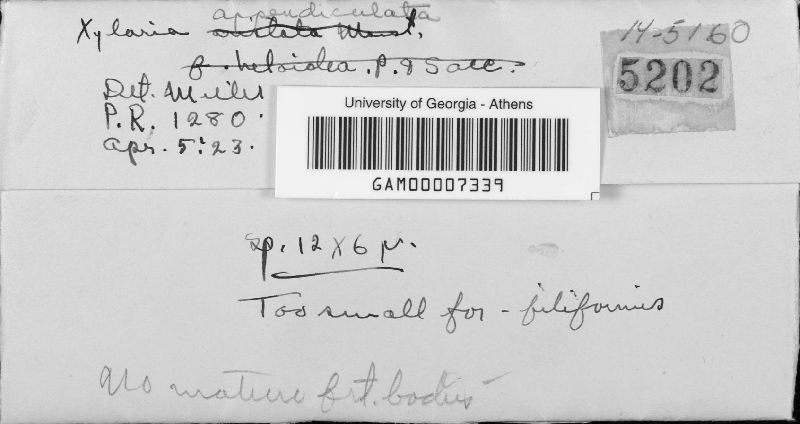 appendiculata
Xylaria
f. heloidea. P. & Sacc.
Det. Miller
P.R. 1280.
Apr. 5:23.
14-5160
5202
University of Georgia - Athens
GAM00007339
sp. 12 x 6 µ.
Too small for - filiformis
No mature frt. bodies